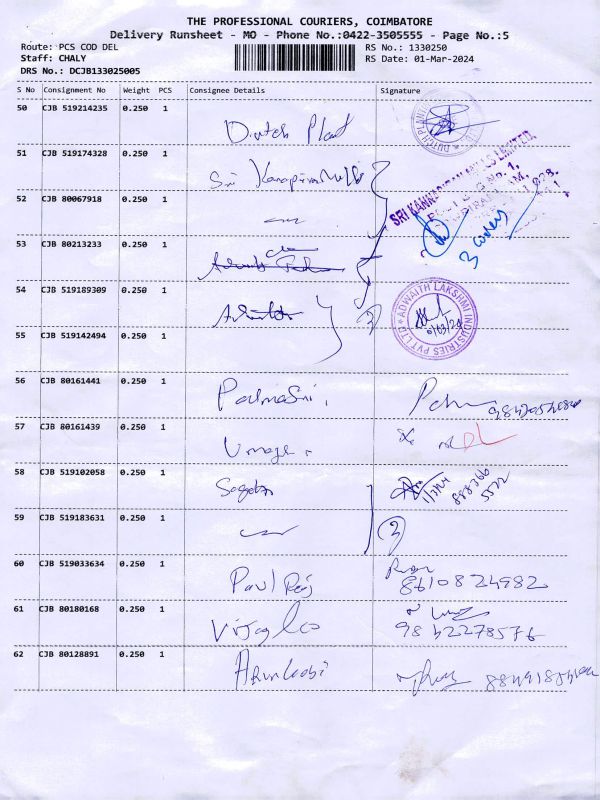 THE PROFESSIONAL COURIERS, COIMBATORE
Delivery Runsheet - MO - Phone No.:0422-3505555 - Page No.:5
Route: PCS COD DEL
RS No.: 1330250
Staff: CHALY
RS Date: 01-Mar-2024
DRS No.: DCJB133025005
S No Consignment No Weight PCS Consignee Details Signature
50 CJB 519214235 0.250 1
Dutch Plant
51 CJB 519174328 0.250 1
Sri
SRI
LIMITED
52 CJB 80067918 0.250 1
3 covers
53 CJB 80213233 0.250 1
54 CJB 519189309 0.250 1
ADWAITH LAKSHMI INDUSTRIES PVT LTD
55 CJB 519142494 0.250 1
56 CJB 80161441 0.250 1
PadmaSri,
57 CJB 80161439 0.250 1
58 CJB 519102058 0.250 1
1/3/24
59 CJB 519183631 0.250 1
2
60 CJB 519033634 0.250 1
Paul Raj
8610824982
61 CJB 80180168 0.250 1
9842278576
62 CJB 80128891 0.250 1